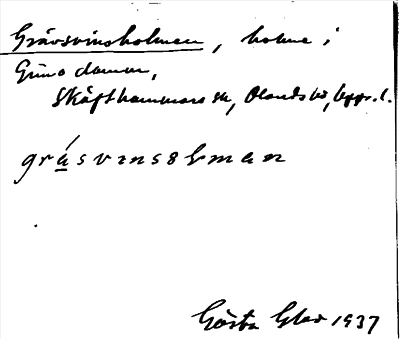 Gråsvinsholmen, holme i
Gimo damm,
Skäfthammars sn, Olands hd, Uppl.
gråsvinsɛlmɛn
Gösta 1937